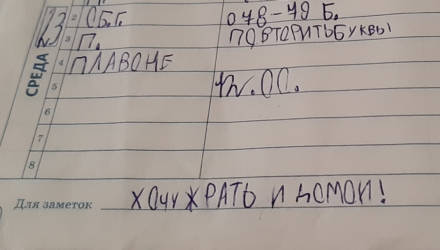 СРЕДА
23
2 СБ.Г. 078-79 Б.
3 П. ПОВТОРИТЬ БУКВЫ
4 ПЛАВОНЕ
5 .00.
6
7
8
Для заметок ХОЧУ ЖРАТЬ И ДОМОЙ!